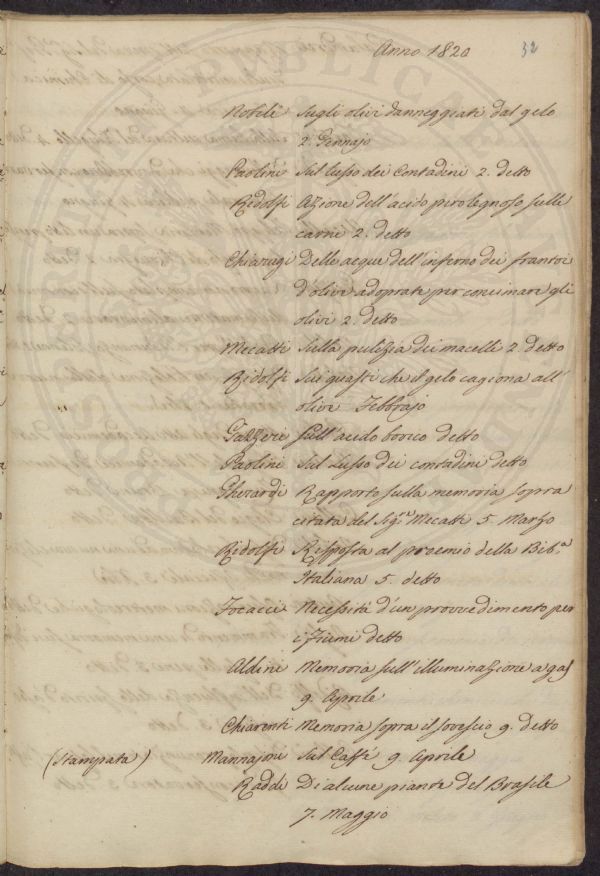 Anno 1820 32
Nobili Sugli olivi danneggiati dal gelo
2. Gennajo
Paolini Sul lusso dei Contadini 2. detto
Ridolfi Azione dell'acido pirolegnoso sulle
carni 2. detto
Chiarugi Delle acque dell'inferno dei frantoi
d'olive adoprate per concimare gli
olivi 2. detto
Mecatti Sulla pulizia dei macelli 2. detto
Ridolfi Sui guasti che il gelo cagiona all'
olivi Febbrajo
Gazzeri Sull'acido borico detto
Paolini Sul Lusso dei contadini detto
Gherardi Rapporto sulla memoria sopra
citata del Sig.re Mecatti 5. Marzo
Ridolfi Risposta al proemio della Bib.a
Italiana 5. detto
Focacci Necessità d'un provvedimento per
i Fiumi detto
Aldini Memoria sull'illuminazione a gas
9. Aprile
Chiarenti Memoria sopra il sovescio 9. detto
(Stampata) Mannajoni Sul Caffé 9. Aprile
Raddi Di alcune piante del Brasile
7. Maggio